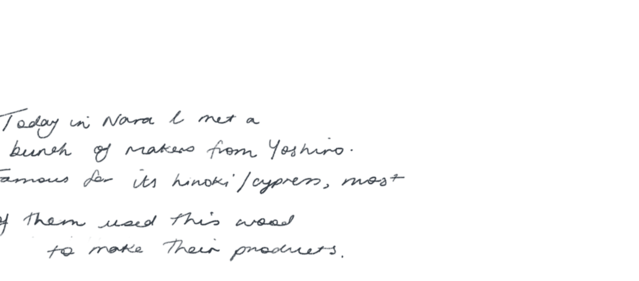 Today in Nara I met a
bunch of makers from Yoshino.
Famous for its hinoki/cypress, most
of them used this wood
to make their products.